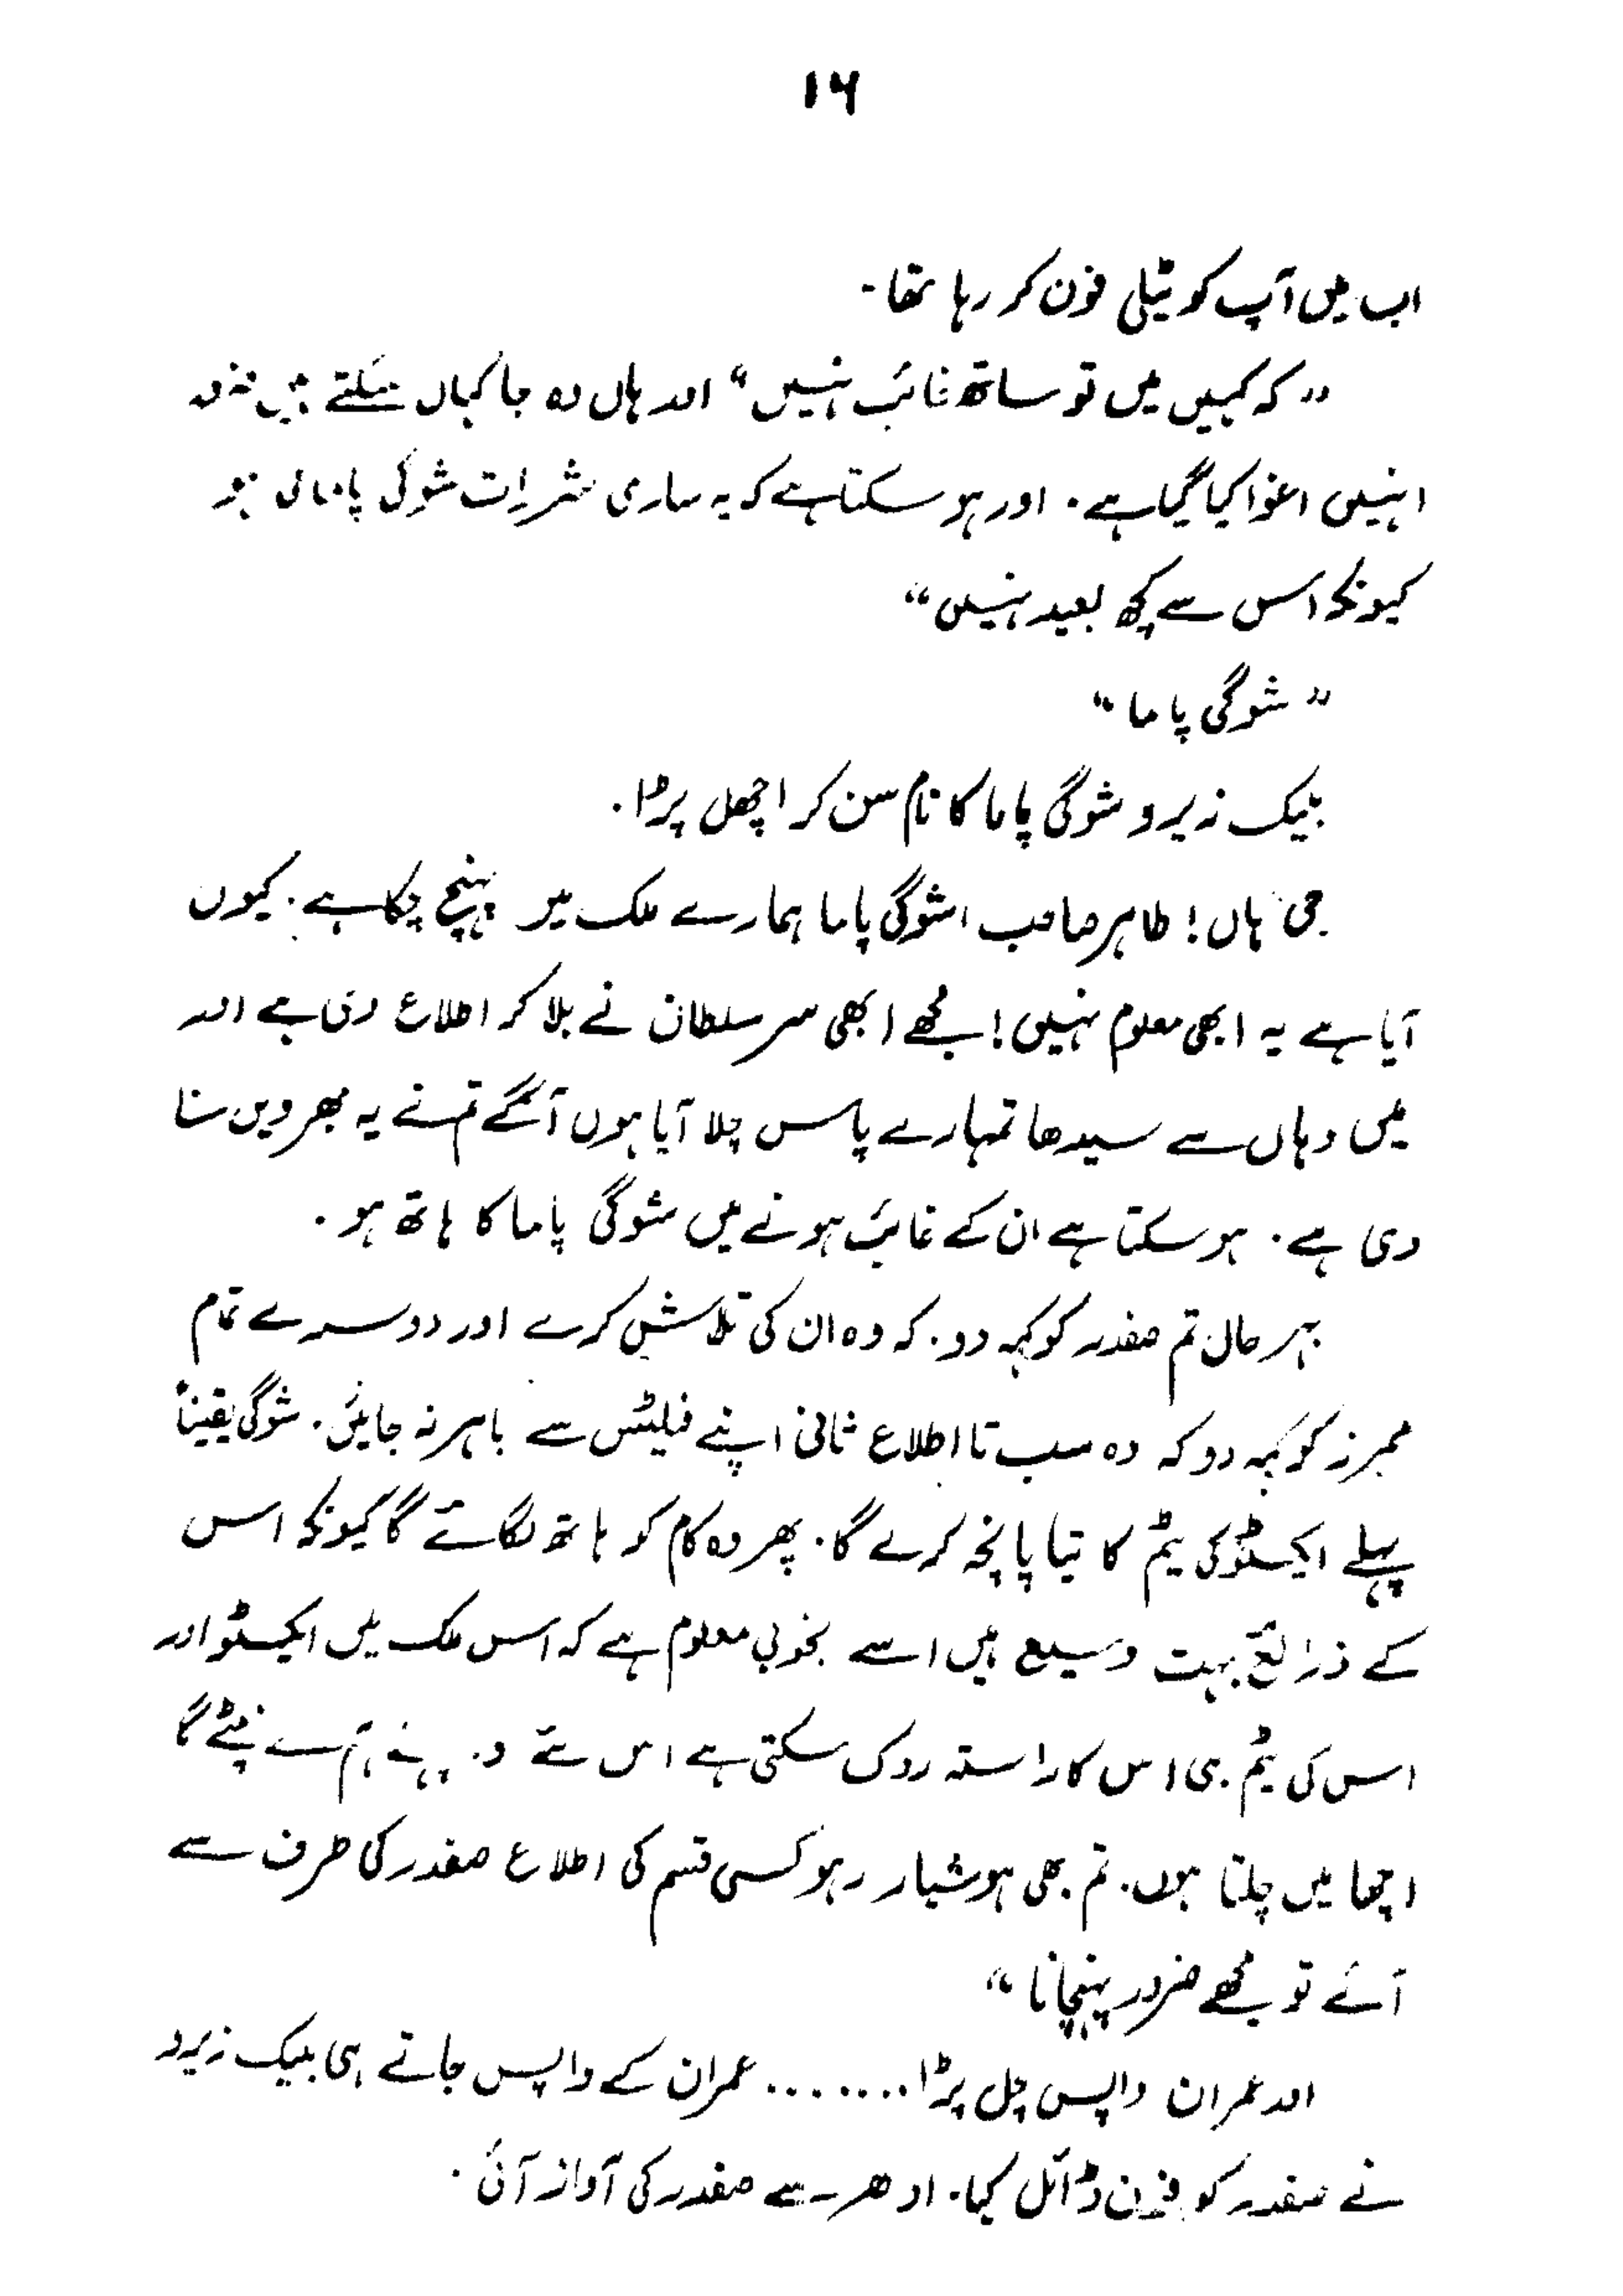 ۱۶
اب میں آپ کو ٹیلی فون کر رہا تھا۔
" کہ کہیں میں تو ساتھ غائب نہیں " اور ہاں وہ جا کہاں سکتے ہیں ضرور
انہیں اغوا کیا گیا ہے۔ اور ہو سکتا ہے کہ یہ ساری شرارت شوگی پاما کی ہو
کیونکہ اس سے کچھ بعید نہیں "
" شوگی پاما "
بلیک زیرو شوگی پاما کا نام سن کر اچھل پڑا۔
جی ہاں! طاہر صاحب! شوگی پاما ہمارے ملک میں پہنچ چکا ہے۔ کیوں
آیا ہے یہ ابھی معلوم نہیں! مجھے ابھی سر سلطان نے بلا کر اطلاع دی ہے اور
میں وہاں سے سیدھا تمہارے پاس چلا آیا ہوں آگے تم نے یہ بھرویں سنا
دی ہے۔ ہو سکتا ہے ان کے غائب ہونے میں شوگی پاما کا ہاتھ ہو۔
بہر حال تم صفدر کو کہہ دو۔ کہ وہ ان کی تلاش کرے اور دوسرے تمام
ممبرز کو کہہ دو کہ وہ سب تا اطلاع ثانی اپنے فلیٹس سے باہر نہ جائیں۔ شوگی یقیناً
پہلے ایکسٹو کی ٹیم کا تیا پانچہ کرے گا۔ پھر وہ کام کو ہاتھ لگائے گا کیونکہ اس
کے ذرائع بہت وسیع ہیں اسے بخوبی معلوم ہے کہ اس ملک میں ایکسٹو اور
اس کی ٹیم ہی اس کا راستہ روک سکتی ہے اس لئے وہ پہلے ہم سے نپٹے گا
اچھا میں چلتا ہوں۔ تم بھی ہوشیار رہو کسی قسم کی اطلاع صفدر کی طرف سے
آئے تو مجھے ضرور پہنچانا "
اور عمران واپس چل پڑا........ عمران کے واپس جاتے ہی بلیک زیرو
نے صفدر کو فون ڈائل کیا۔ ادھر سے صفدر کی آواز آئی۔